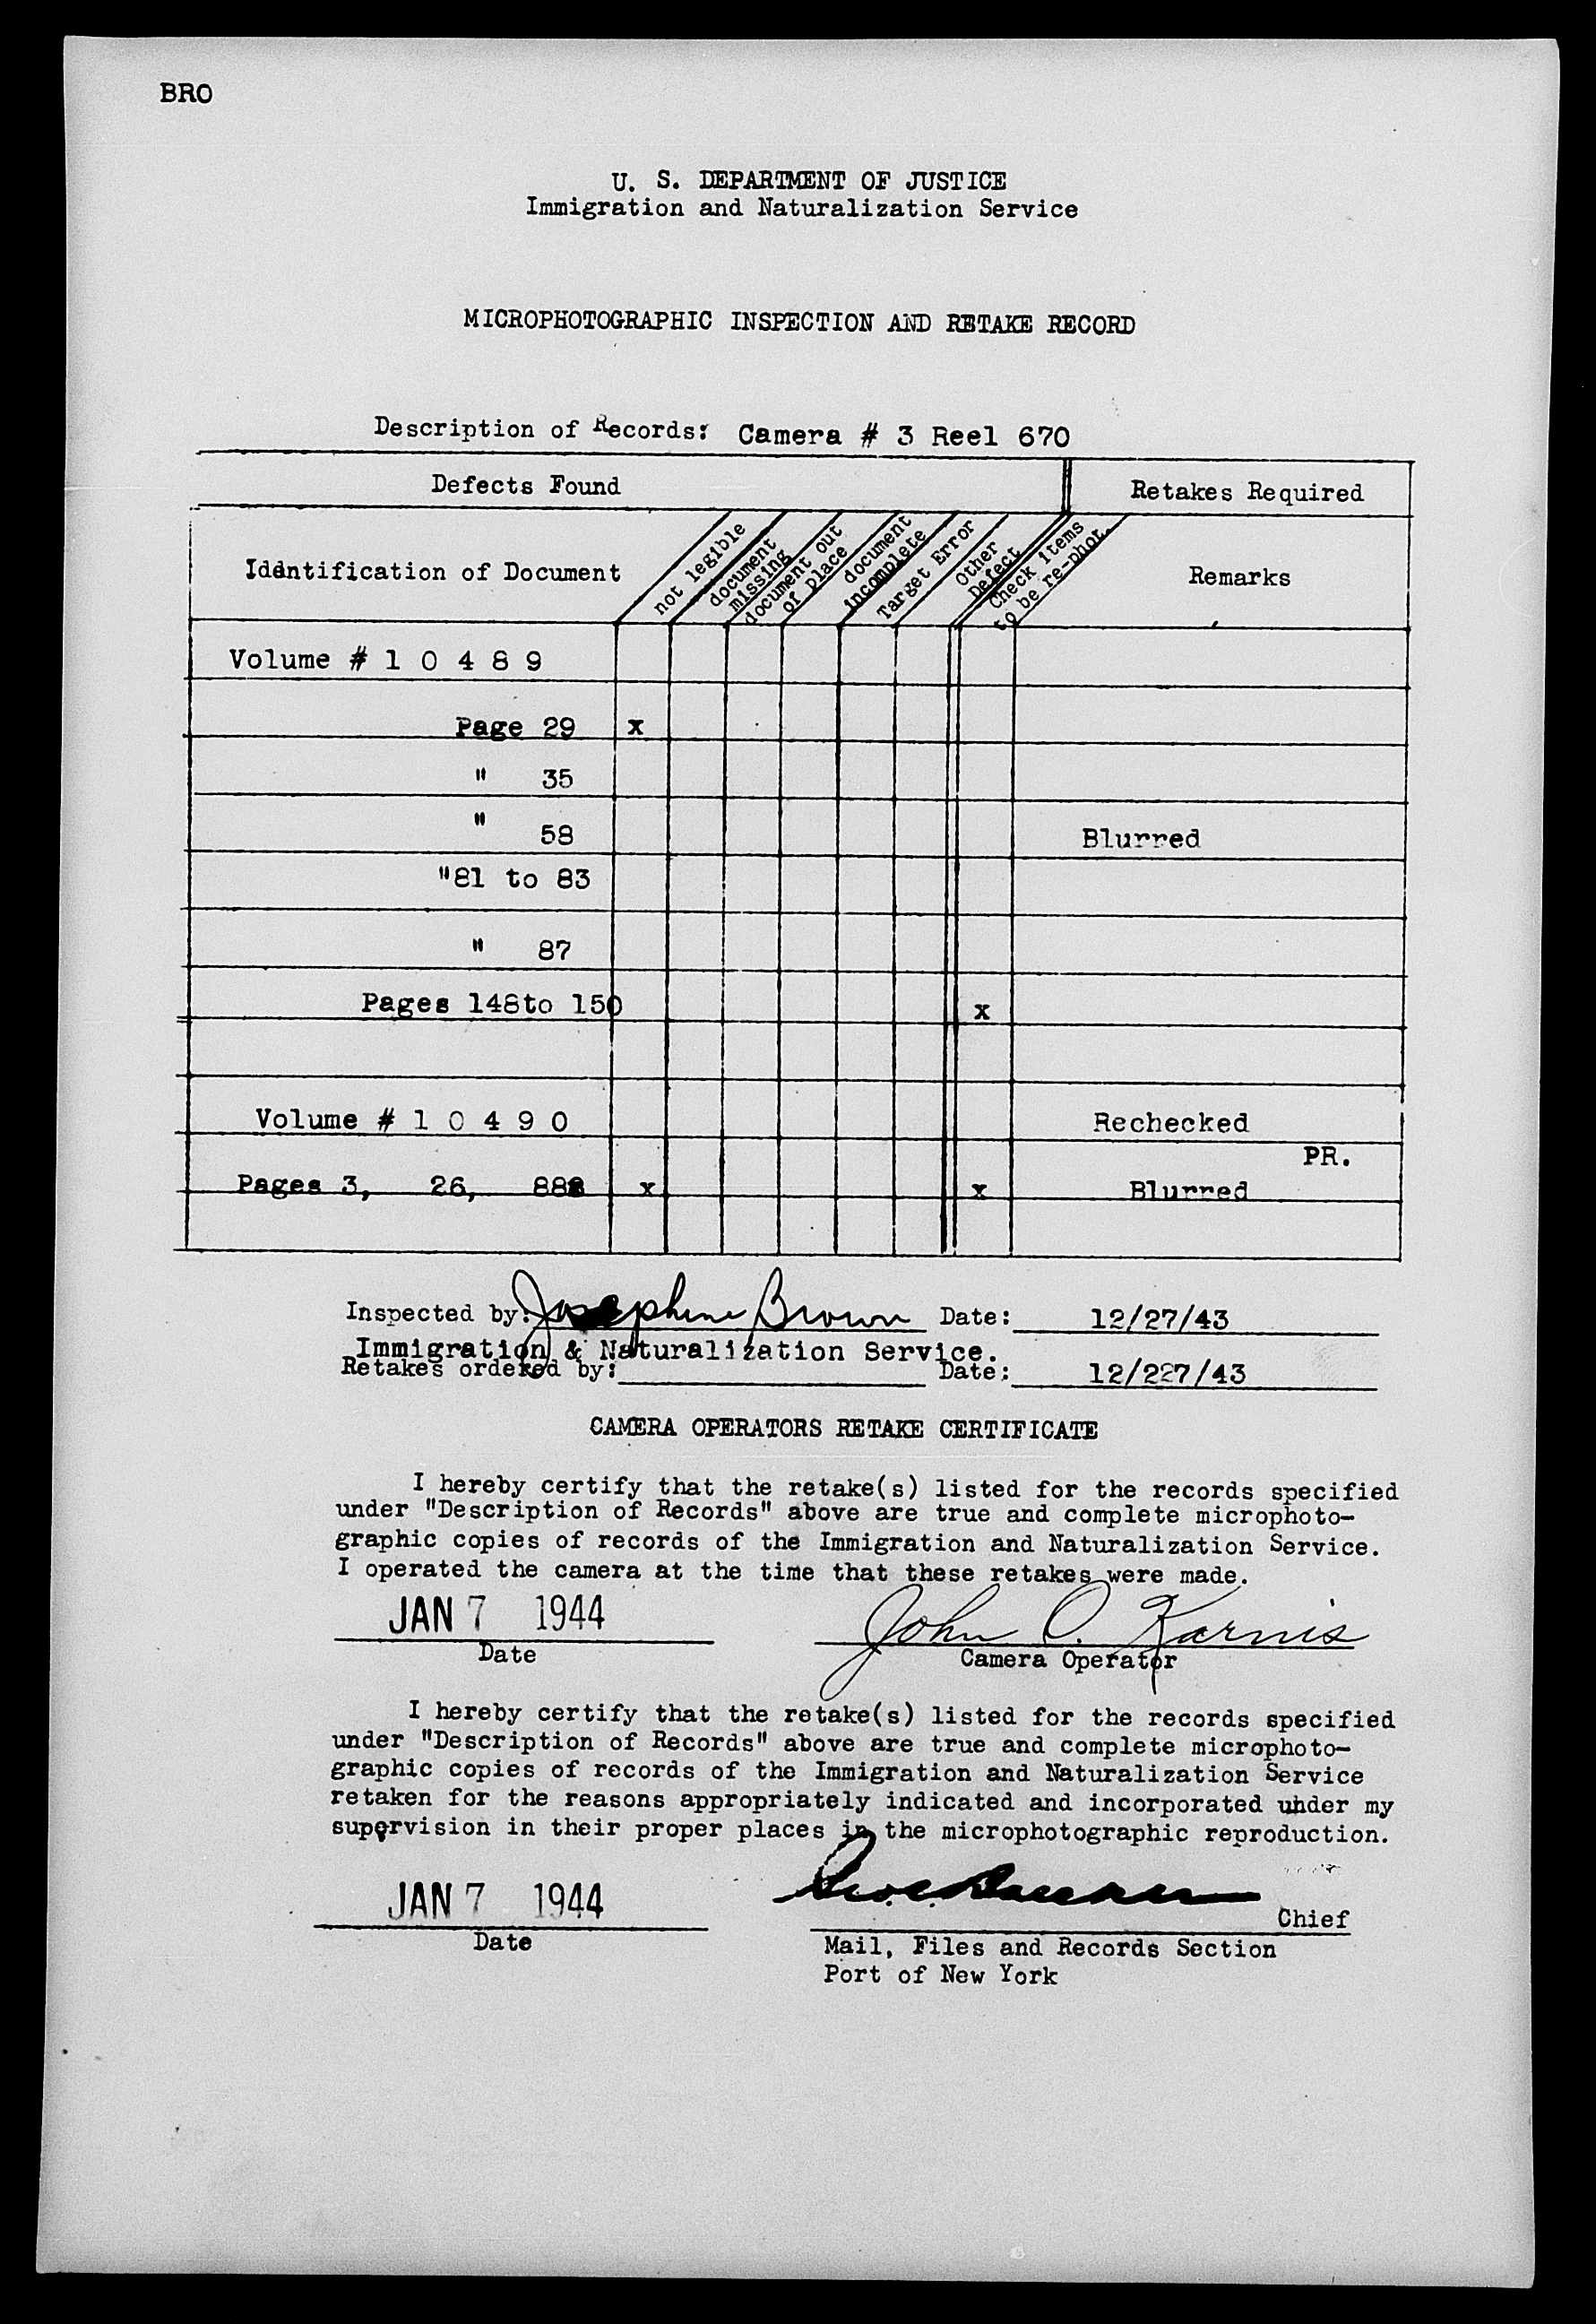 BRO
U. S. DEPARTMENT OF JUSTICE
Immigration and Naturalization Service
MICROPHOTOGRAPHIC INSPECTION AND RETAKE RECORD
Description of Records: Camera # 3 Reel 670
Defects Found Retakes Required
Identification of Document
not legible
document missing
document out of place
document incomplete
Target Error
Other Defect
Check items to be re-phot.
Remarks
Volume # 1 0 4 8 9
Page 29 x
" 35
" 58 Blurred
"81 to 83
" 87
Pages 148to 150 x
Volume # 1 0 4 9 0 Rechecked
PR.
Pages 3, 26, 88 x x Blurred
Inspected by: Josephine Brown Date: 12/27/43
Immigration & Naturalization Service.
Retakes ordered by: Date: 12/227/43
CAMERA OPERATORS RETAKE CERTIFICATE
I hereby certify that the retake(s) listed for the records specified
under "Description of Records" above are true and complete microphoto-
graphic copies of records of the Immigration and Naturalization Service.
I operated the camera at the time that these retakes were made.
JAN 7 1944 John O. Karnis
Date Camera Operator
I hereby certify that the retake(s) listed for the records specified
under "Description of Records" above are true and complete microphoto-
graphic copies of records of the Immigration and Naturalization Service
retaken for the reasons appropriately indicated and incorporated under my
supervision in their proper places in the microphotographic reproduction.
JAN 7 1944
Chief
Date
Mail, Files and Records Section
Port of New York